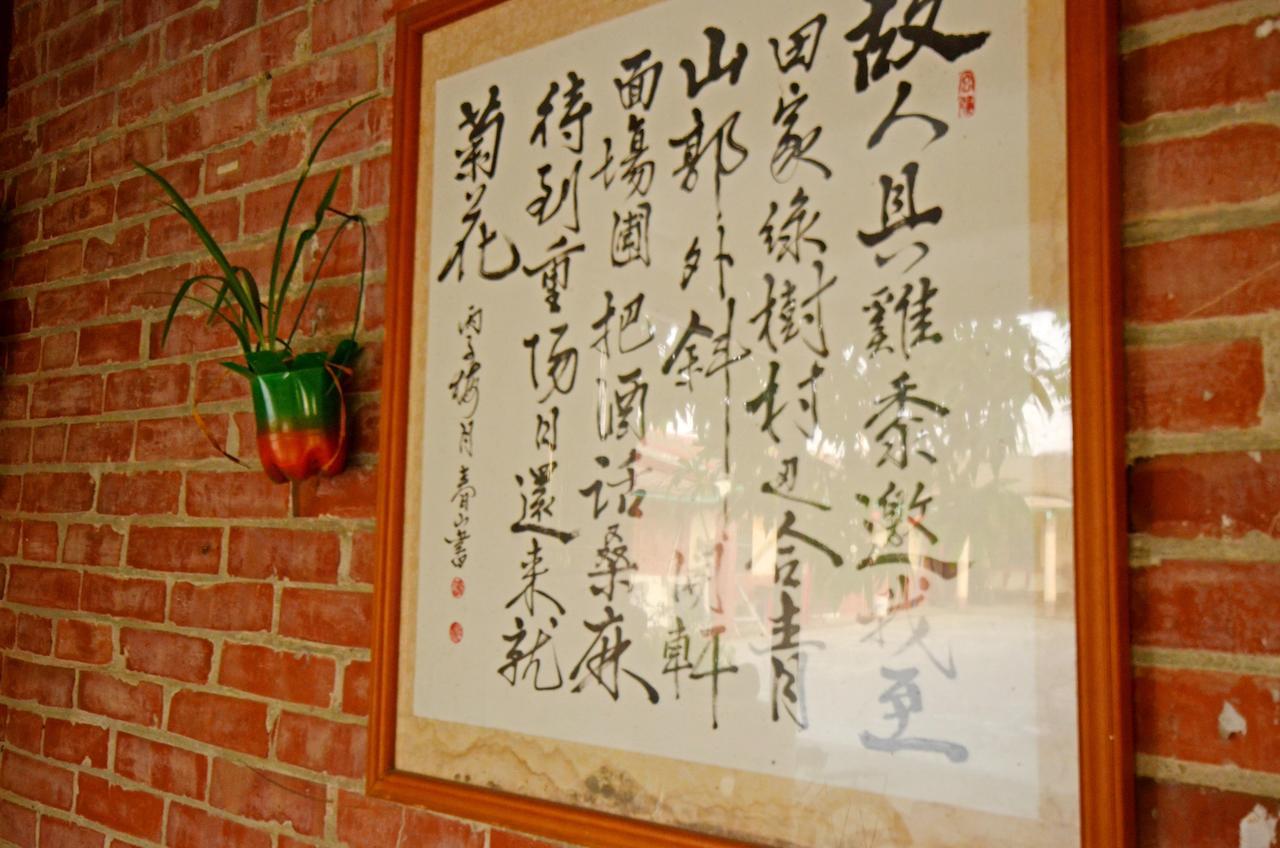 故人具雞黍邀我至
田家綠樹村邊合青
山郭外斜開軒
面場圃把酒話桑麻
待到重陽日還来就
菊花
丙子梅月春山書